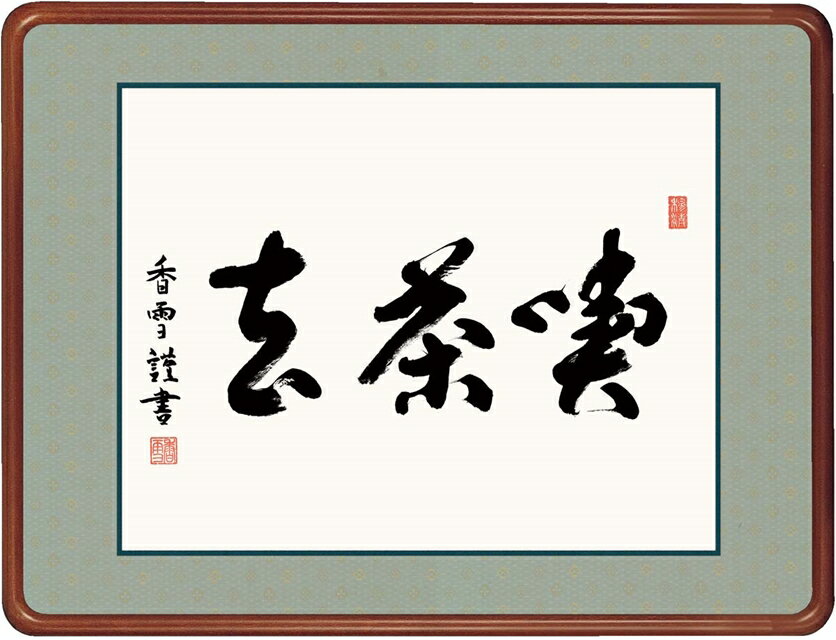 喫茶去
香雪謹書